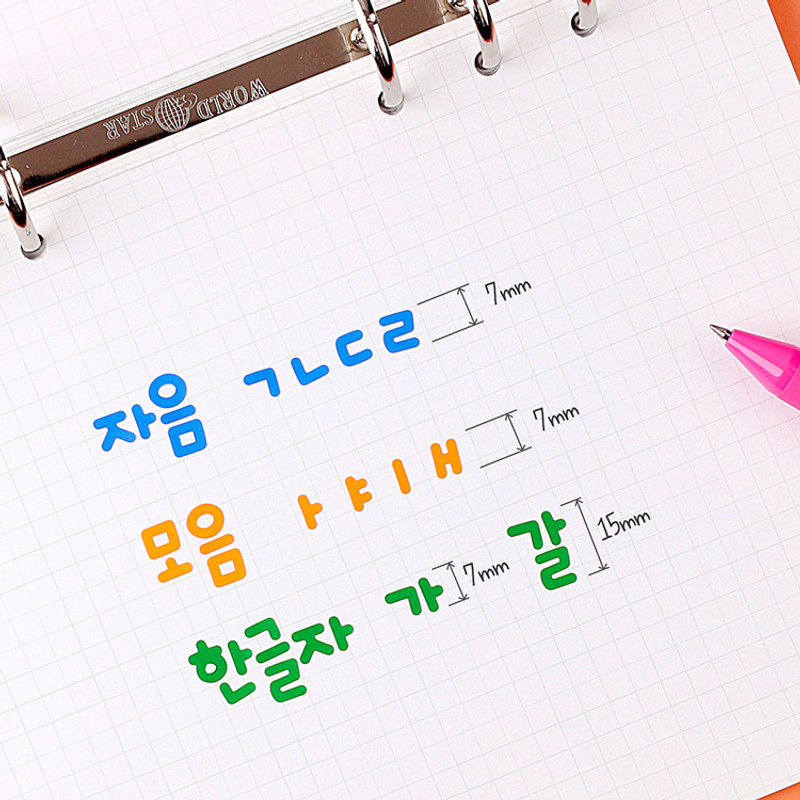 WORLD STAR
자음 ㄱㄴㄷㄹ 7mm
모음 ㅏㅑㅣㅐ 7mm
한글자 가 7mm 갈 15mm